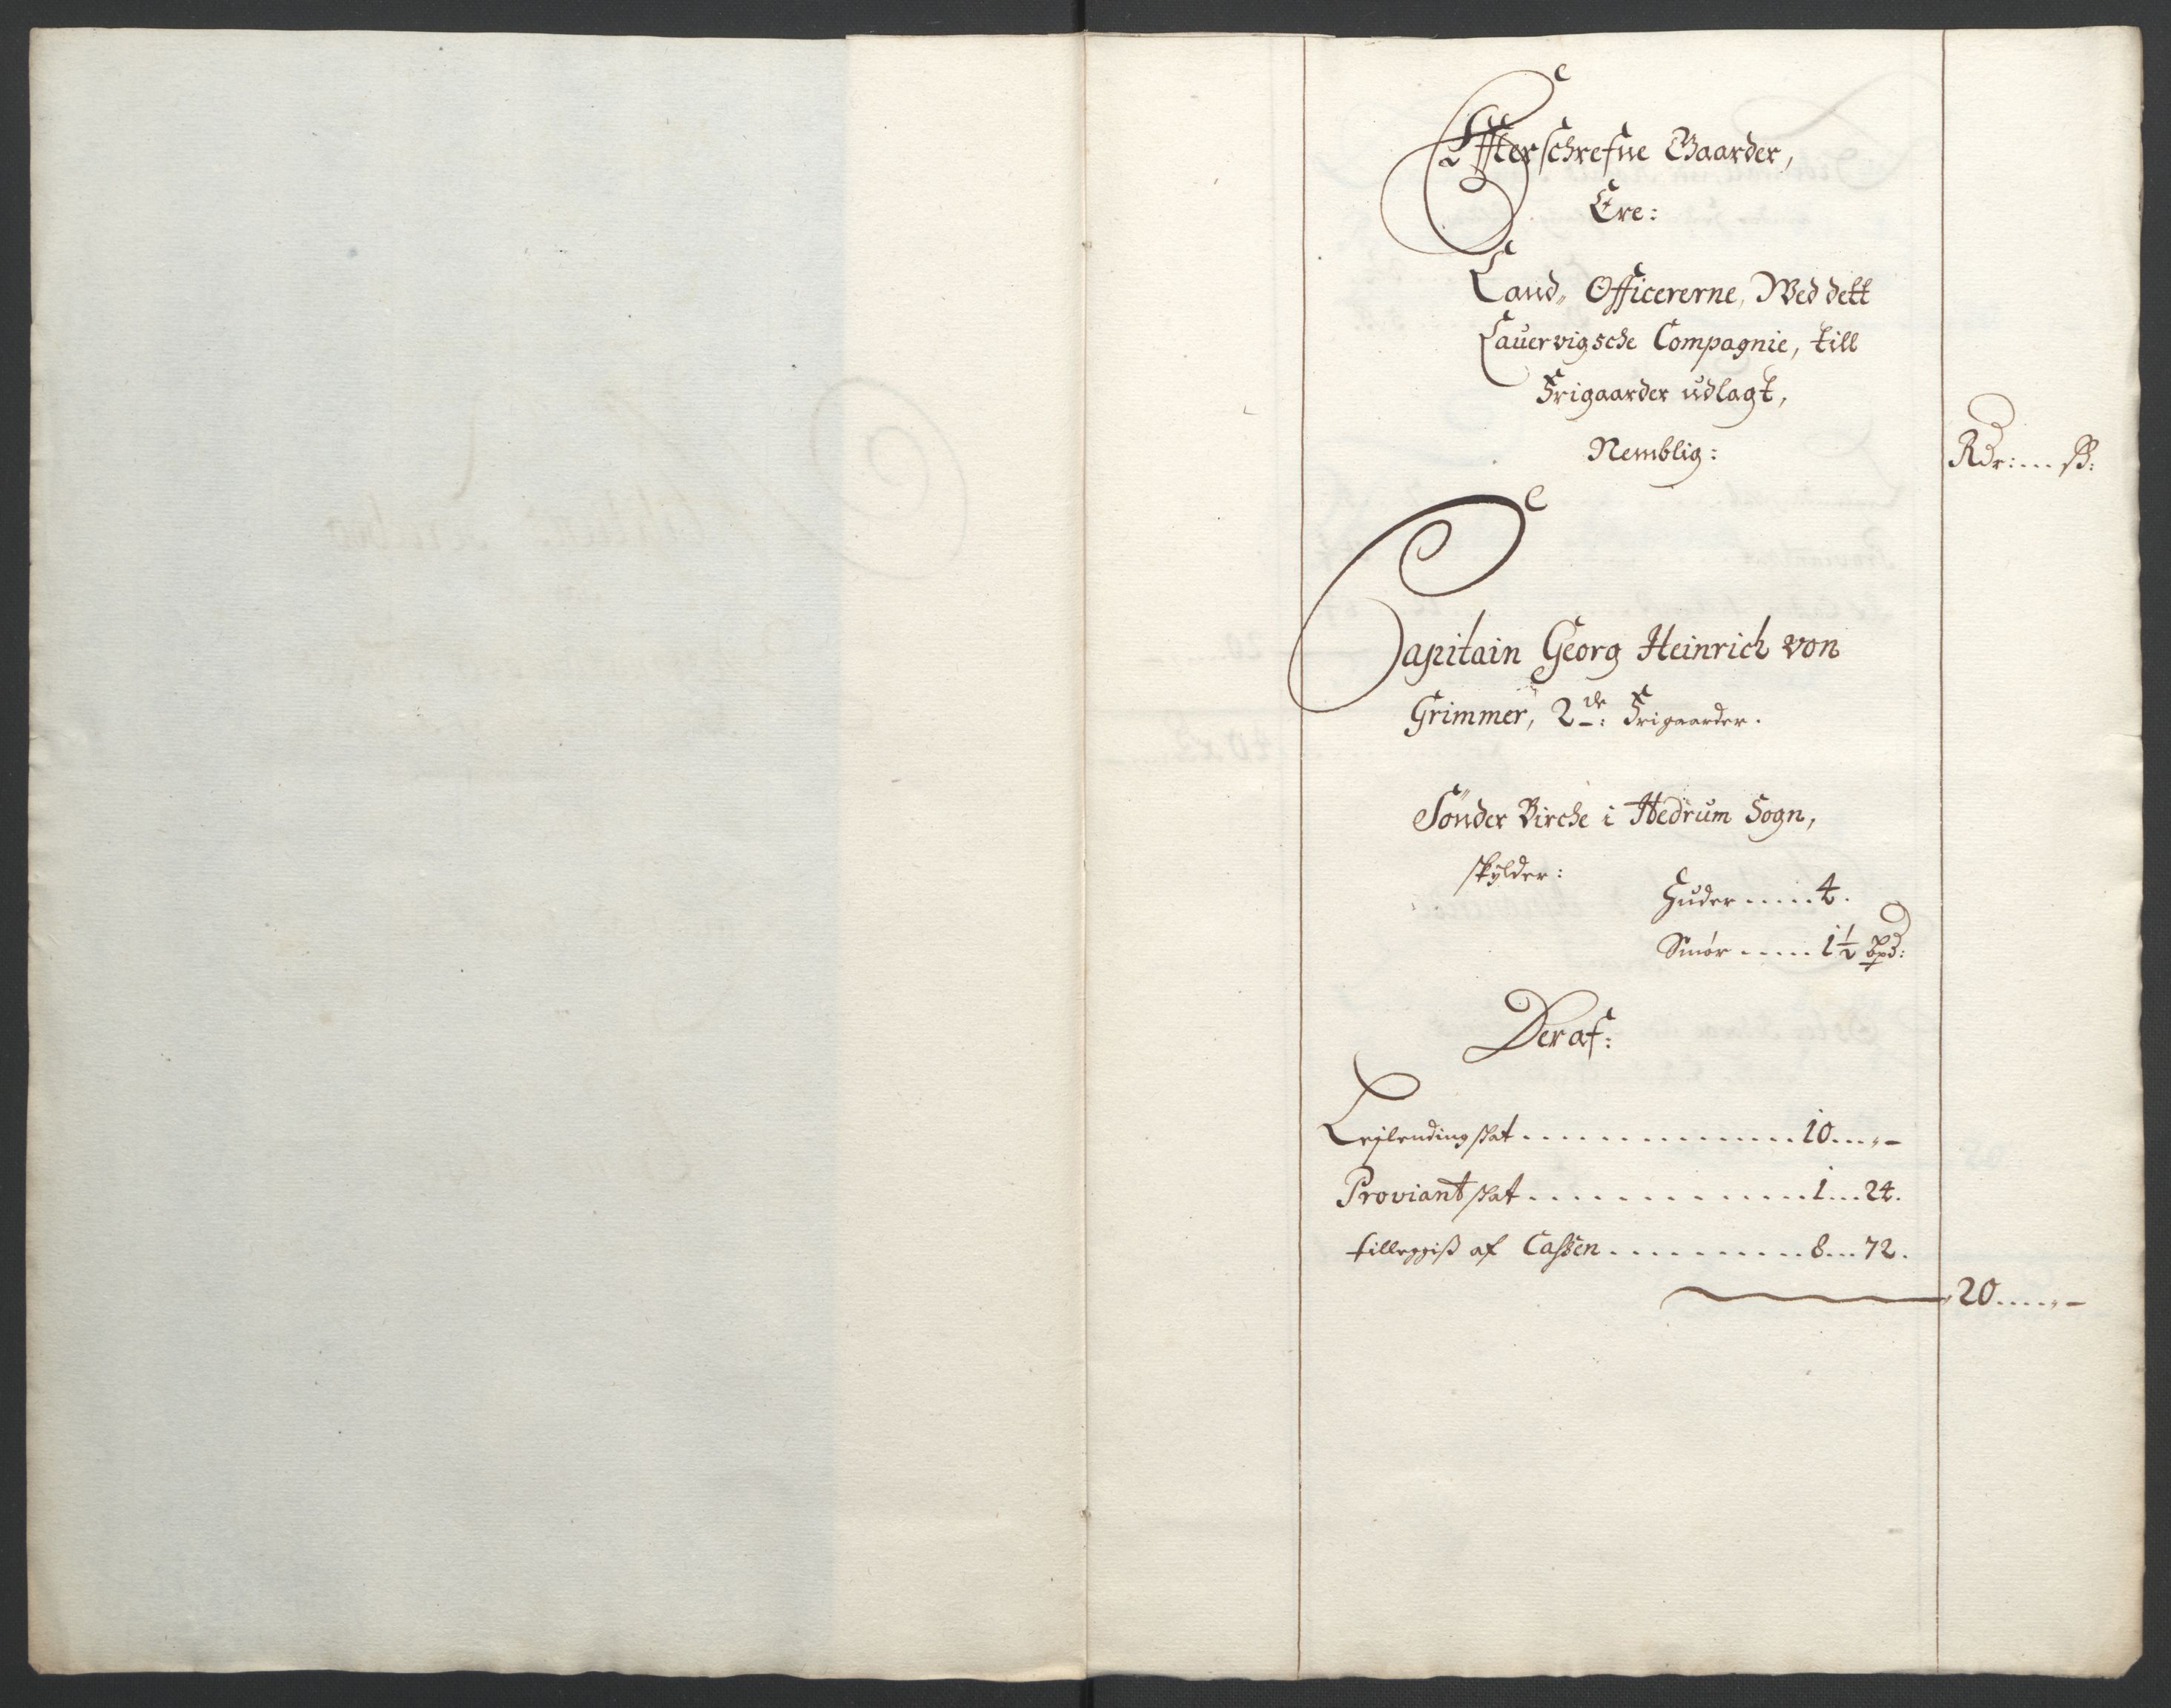 Effterschrefne Gaarder,
Ere:
Land, Officererne, Wed dett
Lauervigsche Compagnie, till
Frigaarder udlagt,
Nemblig:
Rdr: ... ß:
Capitain Georg Heinrich von
Grimmer, 2de: Frigaarder.
Sönder Birche i Hedrum Sogn,
skylder:
Huder ..... 4.
Smör ..... 1½ bpd:
Deraf:
Leylendingskat ............. 10....-
Proviantskat ............. 1...24.
tilleggiß af Caßen .......... 8...72.
20.....-